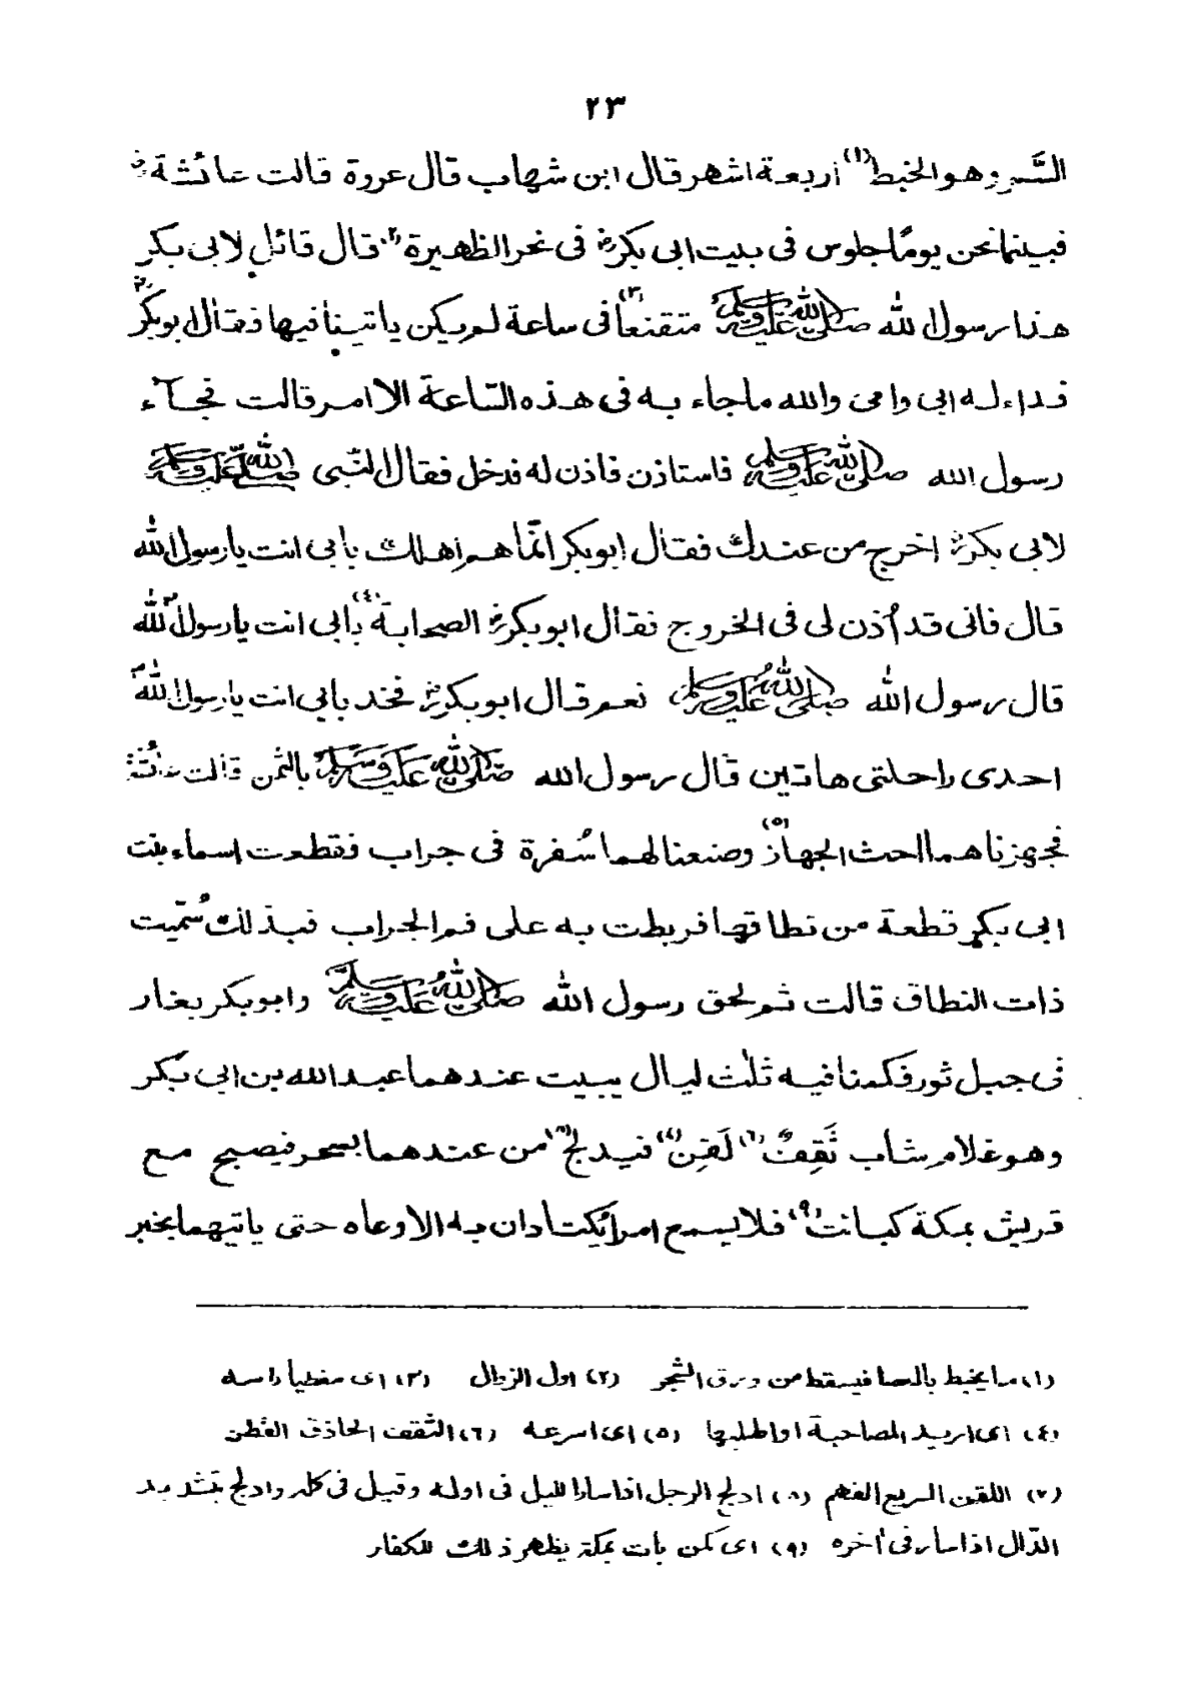 ٢٣
السَّمر وهو الخبط(١) أربعة اشهر قال ابن شهاب قال عروة قالت عائشة رض
فبينما نحن يومًا جلوس فى بيت ابى بكر رض فى نحر الظهيرة(٢) قال قائل لابى بكر
هذا رسول الله صلى الله عليه وسلم متقنعاً(٣) فى ساعة لم يكن ياتينا فيها فقال ابوبكر رض
فداء له ابى وامى والله ماجاء به فى هذه السّاعة الا امر قالت فجآء
رسول الله صلى الله عليه وسلم فاستاذن فاذن له فدخل فقال النّبى صلى الله عليه وسلم
لابى بكر رض اخرج من عندك فقال ابوبكر انّما هم اهلك بابى انت يا رسول الله
قال فانى قد أُذن لى فى الخروج فقال ابوبكر رض الصحابة(٤) بأبى انت يا رسول الله
قال رسول الله صلى الله عليه وسلم نعم قال ابوبكر رض فخذ بابى انت يا رسول الله
احدى راحلتى هاتين قال رسول الله صلى الله عليه وسلم بالثمن قالت عائشة
فجهزناهما احث الجهاز(٥) وصنعنا لهما سُفرة فى جراب فقطعت اسماء بنت
ابى بكر قطعة من نطاقها فربطت به على فم الجراب فبذلك سُمّيت
ذات النطاق قالت ثم لحق رسول الله صلى الله عليه وسلم وابوبكر بغار
فى جبل ثور فكمنا فيه ثلٰث ليال يبيت عندهما عبد الله بن ابى بكر
وهو غلام شاب ثَقِفٌ(٦) لَقِن(٧) فيدلج(٨) من عندهما بسحر فيصبح مع
قريش بمكة كبائت(٩) فلا يسمع امرا يُكتادان به الا وعاه حتى ياتيهما بخبر
(١) ما يخبط بالعصا فيسقط من ورق الشجر (٢) اول الزوال (٣) اى مغطيا راسه
(٤) اى اريد المصاحبة او اطلبها (٥) اى اسرعه (٦) الثقف الحاذق الفطن
(٧) اللقن السريع الفهم (٨) ادلج الرجل اذا سار الليل فى اوله وقيل فى كله وادلج بتشديد
الدّال اذا سار فى أخره (٩) اى كمن بات بمكة يظهر ذلك للكفار